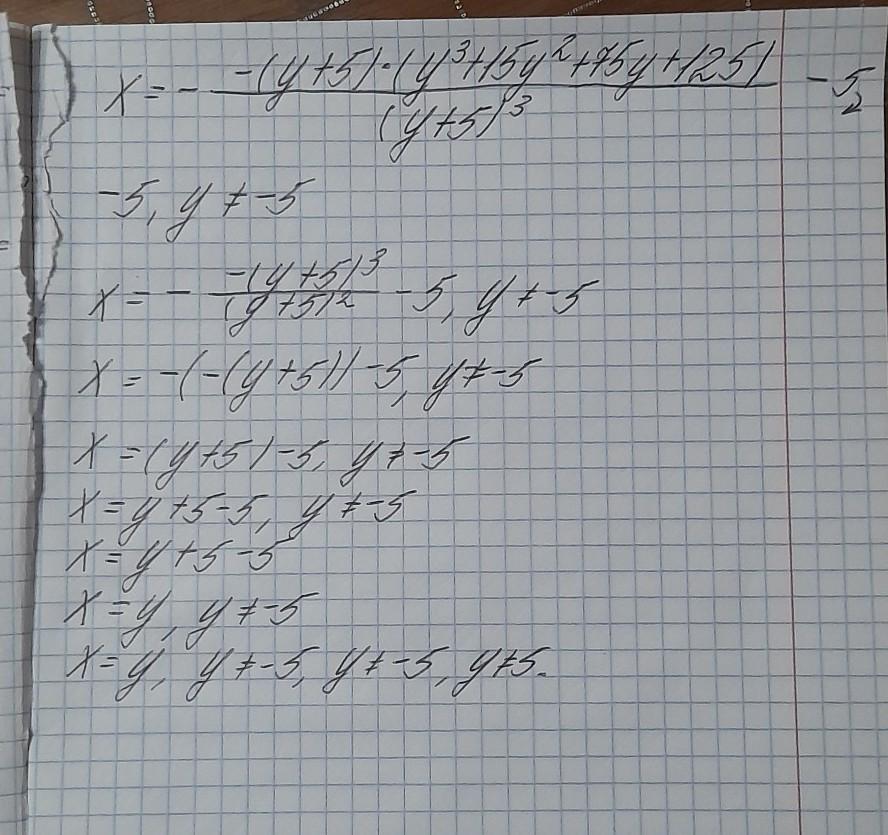 x = - -(y+5)·(y³+15y²+75y+125) / (y+5)³ - 5
-5, y ≠ -5
x = - -(y+5)³ / (y+5)² - 5, y ≠ -5
x = -(-(y+5)) - 5, y ≠ -5
x = (y+5) - 5, y ≠ -5
x = y + 5 - 5, y ≠ -5
x = y + 5 - 5
x = y, y ≠ -5
x = y, y ≠ -5, y ≠ -5, y ≠ 5.